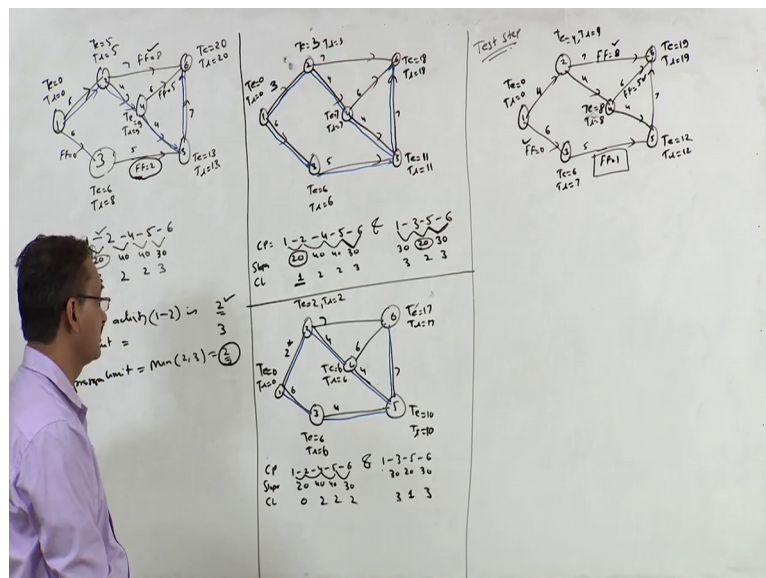 Te=5
TL=5
Te=20
TL=20
FF=8
Te=0
TL=0
1
2
6
7
5
4
4
6
FF=5
Te=9
TL=9
4
7
6
FF=0
3
5
FF=2
5
Te=13
TL=13
Te=6
TL=8
1-2-4-5-6
20 40 40 30
2 2 3
activity (1-2) is 2
3
= min(2,3) = 2
Te=3, TL=3
Te=18
TL=18
Te=0
TL=0
3
7
4
6
Te=7
TL=7
6
4
7
5
Te=11
TL=11
Te=6
TL=6
CP= 1-2-4-5-6 & 1-3-5-6
Slope 20 40 40 30 30 20 30
CL 1 2 2 3 3 2 3
Te=2, TL=2
Te=17
TL=17
6
7
2*
4
6
Te=0
TL=0
Te=6
TL=6
6
4
7
3
4
5
Te=10
TL=10
Te=6
TL=6
CP 1-2-4-5-6 & 1-3-5-6
Slope 20 40 40 30 30 20 30
CL 0 2 2 2 3 1 3
Test step
Te=4, TL=4
FF=8
Te=19
TL=19
2
7
6
Te=0
TL=0
4
4
6
FF=5
1
Te=8
TL=8
4
7
6
FF=0
3
5
5
FF=1
Te=12
TL=12
Te=6
TL=7